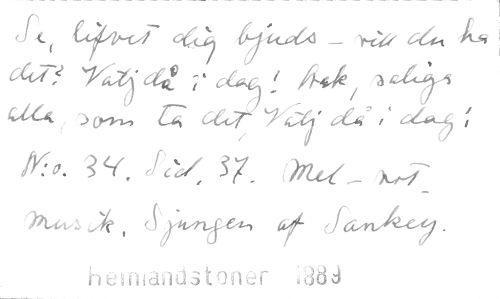 Se, lifvet dig bjuds – vill du ha
det? Välj då i dag! Ack, saliga
alla, som ta det, Välj då i dag!
N:o. 34. Sid. 37. Mel – not-
musik. Sjungen af Sankey.
hemlandstoner 1889